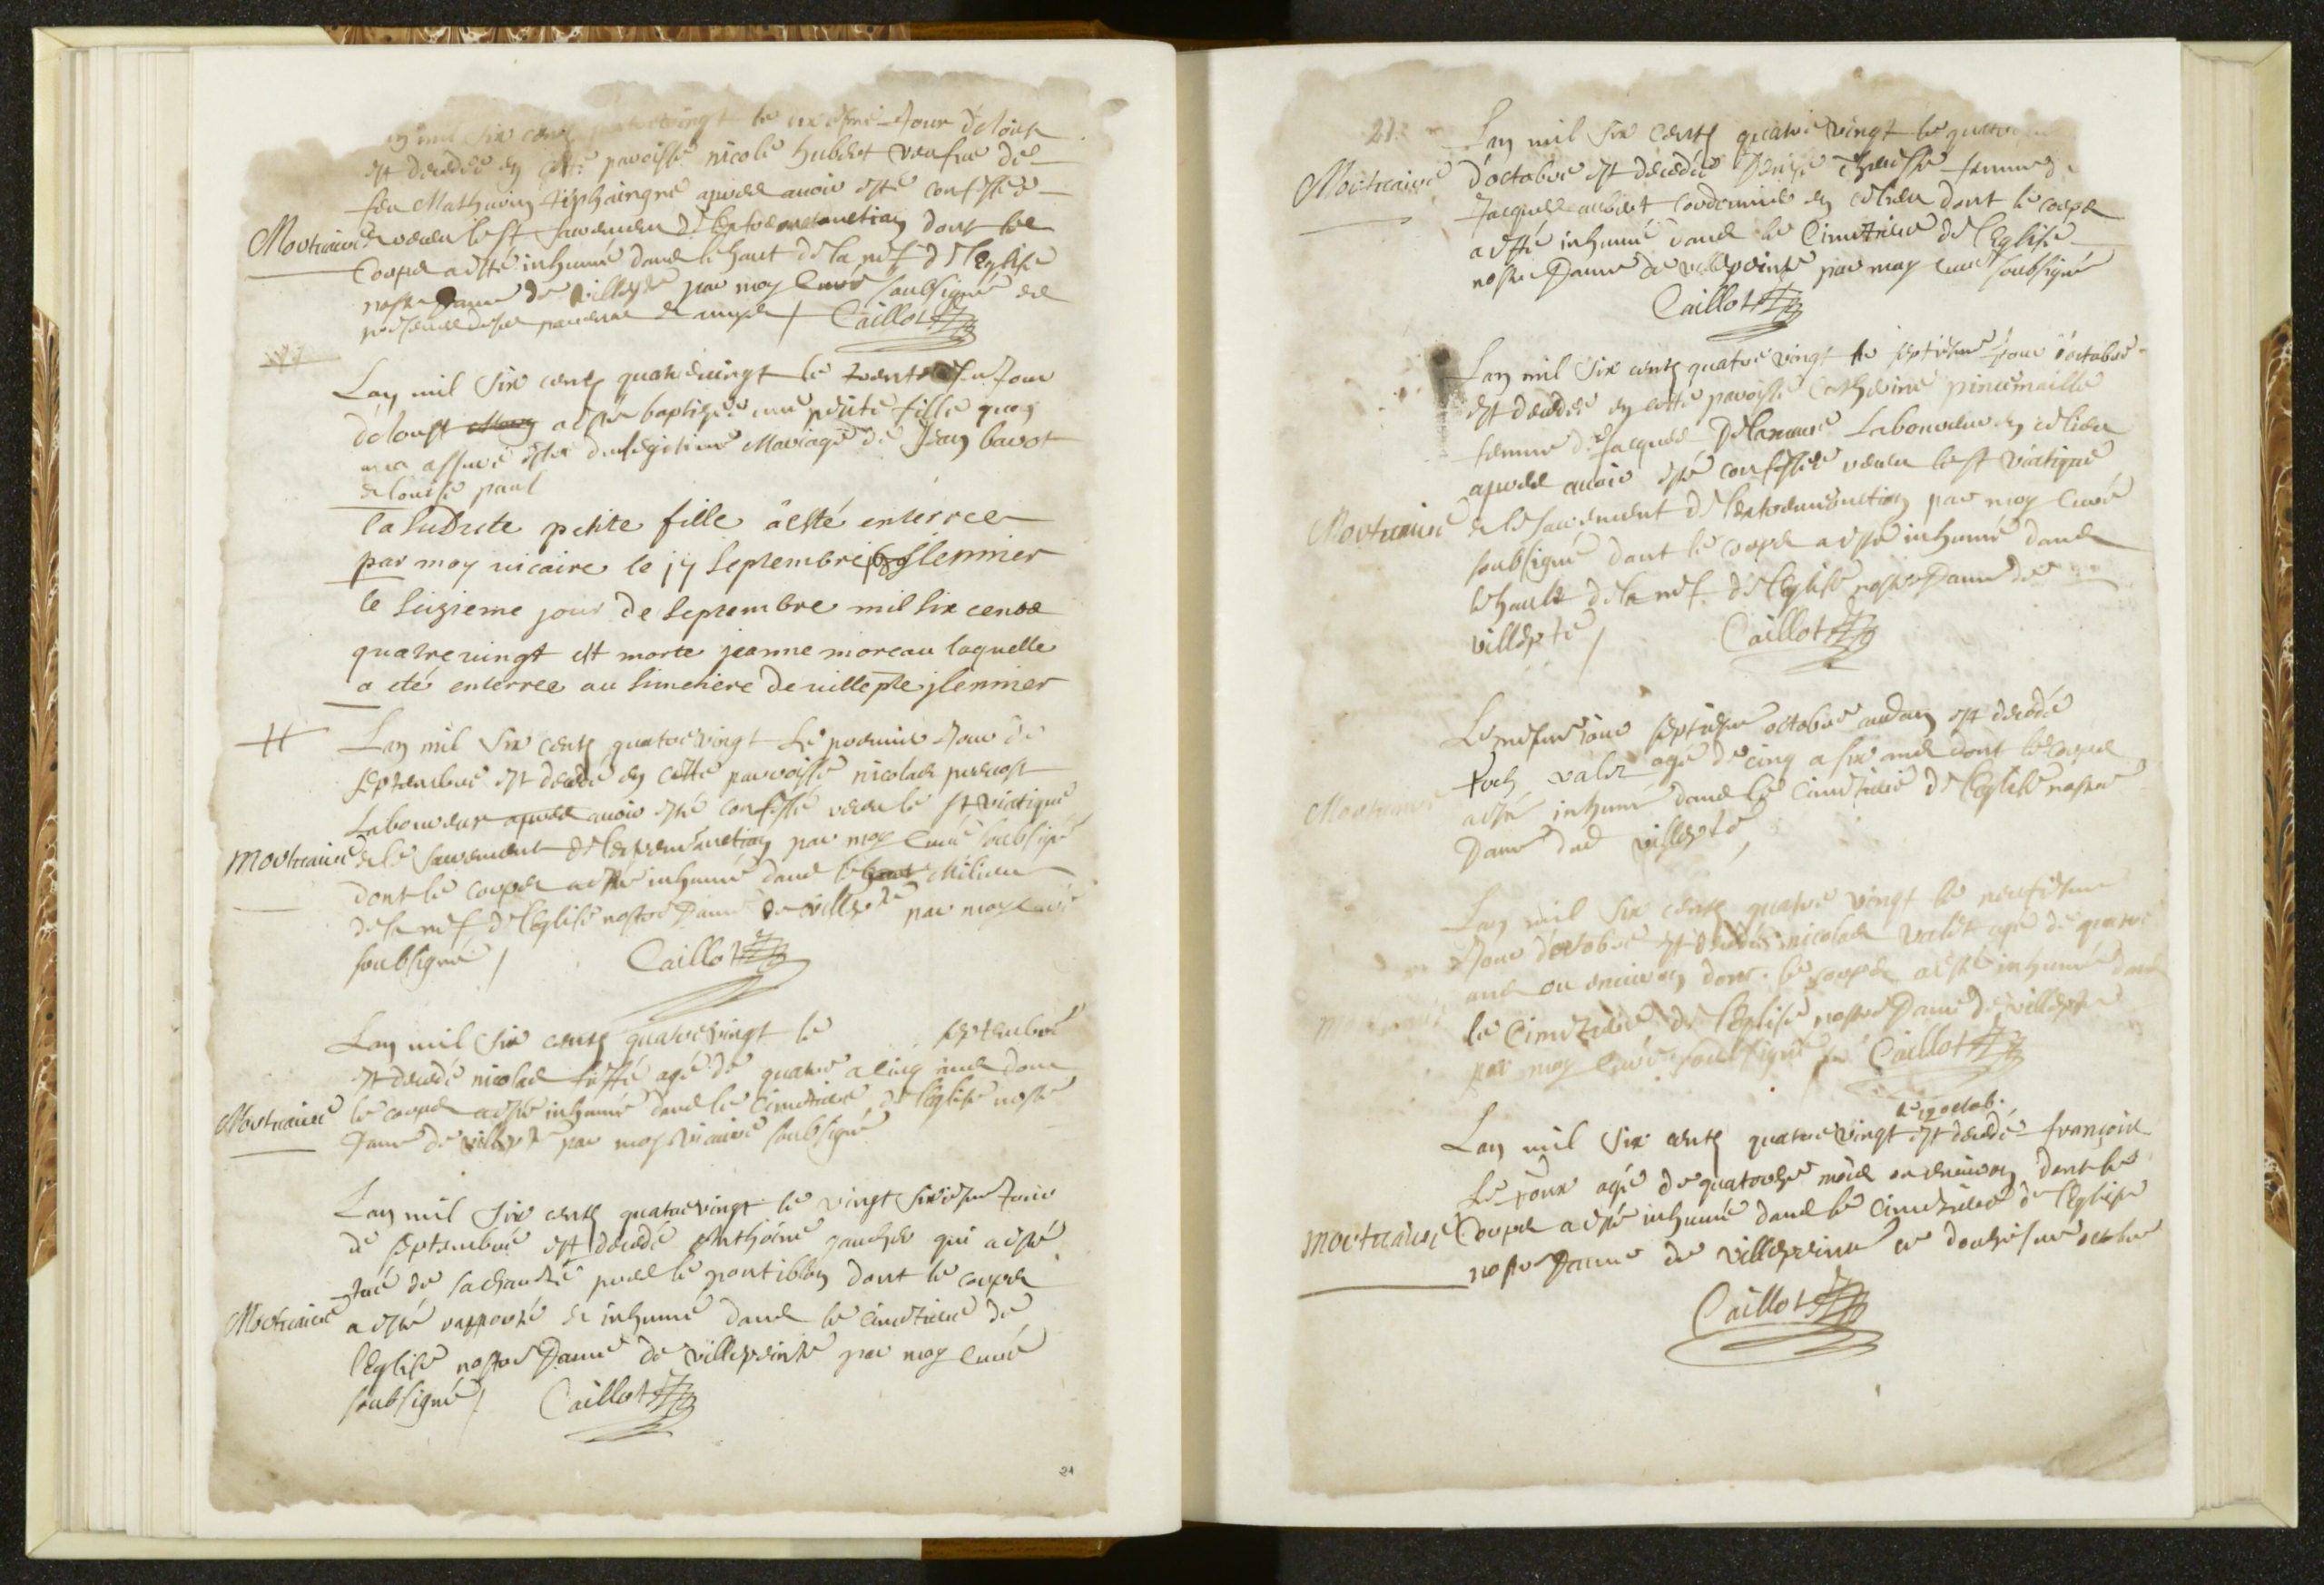 mil six cents quatrevingt le jour d'aoust
est decedée en cette paroisse nicole hubert veufue de
feu Mathurin tiphaingne apres auoir esté confessée
Mortuaire
& receu le st sacrement de lextremeonction dont le
Corps a esté inhumé dans le haut de la nef de l'Eglise
nostre Dame de villepte par moy Curé soubsigné
presence de ses parens & amys / Caillot
Lan mil six cents quatrevingt le jour
d'aoust a esté baptisée une petite fille quon
ma assuré estre du legitime Mariage de Jean bavot
& louise paul
la Sudite petite fille a esté enterree
par moy vicaire le 17 Septembre jlennier
le Seizieme jour de Septembre mil six cens
quatre vingt est morte jeanne moreau laquelle
a eté enterree au Simetiere de villepte jlennier
Lan mil six cents quatrevingt Le premier Jour de
septembre est decedé en cette parroisse nicolas preuost
Laboureur apres auoir esté confessé receu le st viatique
Mortuaire
& le sacrement de lextremeonction par moy Curé soubsigné
dont le corps a esté inhumé dans le Milieu
de la nef de l'Eglise nostre Dame de villepte par moy curé
soubsigné / Caillot
Lan mil six cents quatrevingt le septembre
est decedé nicolas agé de quatre a cinq ans dont
Mortuaire
le corps a esté inhumé dans le Cimetiere de l'eglise nostre
Dame de villepte par moy vicaire soubsigné
Lan mil six cents quatrevingt le vingt sixiesme Jour
de septembre est decedé Anthoine gaucher qui a esté
tué de sa charette pres le pontiblon dont le corps
Mortuaire
a esté rapporté & inhumé dans le cimetiere de
l'Eglise nostre Dame de villepeinte par moy curé
soubsigné / Caillot
21
21
Lan mil six cents quatre vingt le
Mortuaire
d'octobre est decedée Denise femme de
Jacques aubert Cordonnier en ce lieu dont le corps
a esté inhumé dans le Cimetiere de l'Eglise
nostre Dame de villepeinte par moy curé soubsigné
Caillot
Lan mil six cents quatre vingt le septiesme jour d'octobre
est decedée en cette paroisse Catherine pincemaille
femme de Jacques Delamare Laboureur en ce lieu
apres auoir esté confessée receu le st viatique
Mortuaire
& le sacrement de lextremeonction par moy curé
soubsigné dont le corps a esté inhumé dans
le hault de la nef de l'Eglise nostre Dame de
villepte / Caillot
Le mesme jour septiesme octobre audan est decedé
valet agé de cinq a six ans dont le corps
Mortuaire
a esté inhumé dans le cimetiere de l'eglise nostre
Dame dud villepte
Lan mil six cents quatre vingt le neufiesme
Jour d'octobre est decedé nicolas valet agé de quatre
ans ou enuiron dont le corps a esté inhumé dans
Mortuaire
le Cimetiere de l'Eglise nostre Dame de villepte
par moy curé soubsigné Caillot
le 12 octob.
Lan mil six cents quatre vingt est decedé françois
Le roux agé de quatorze mois ou enuiron dont le
Mortuaire
Corps a esté inhumé dans le cimetiere de l'Eglise
nostre Dame de villepeinte ce douziesme octobre
Caillot